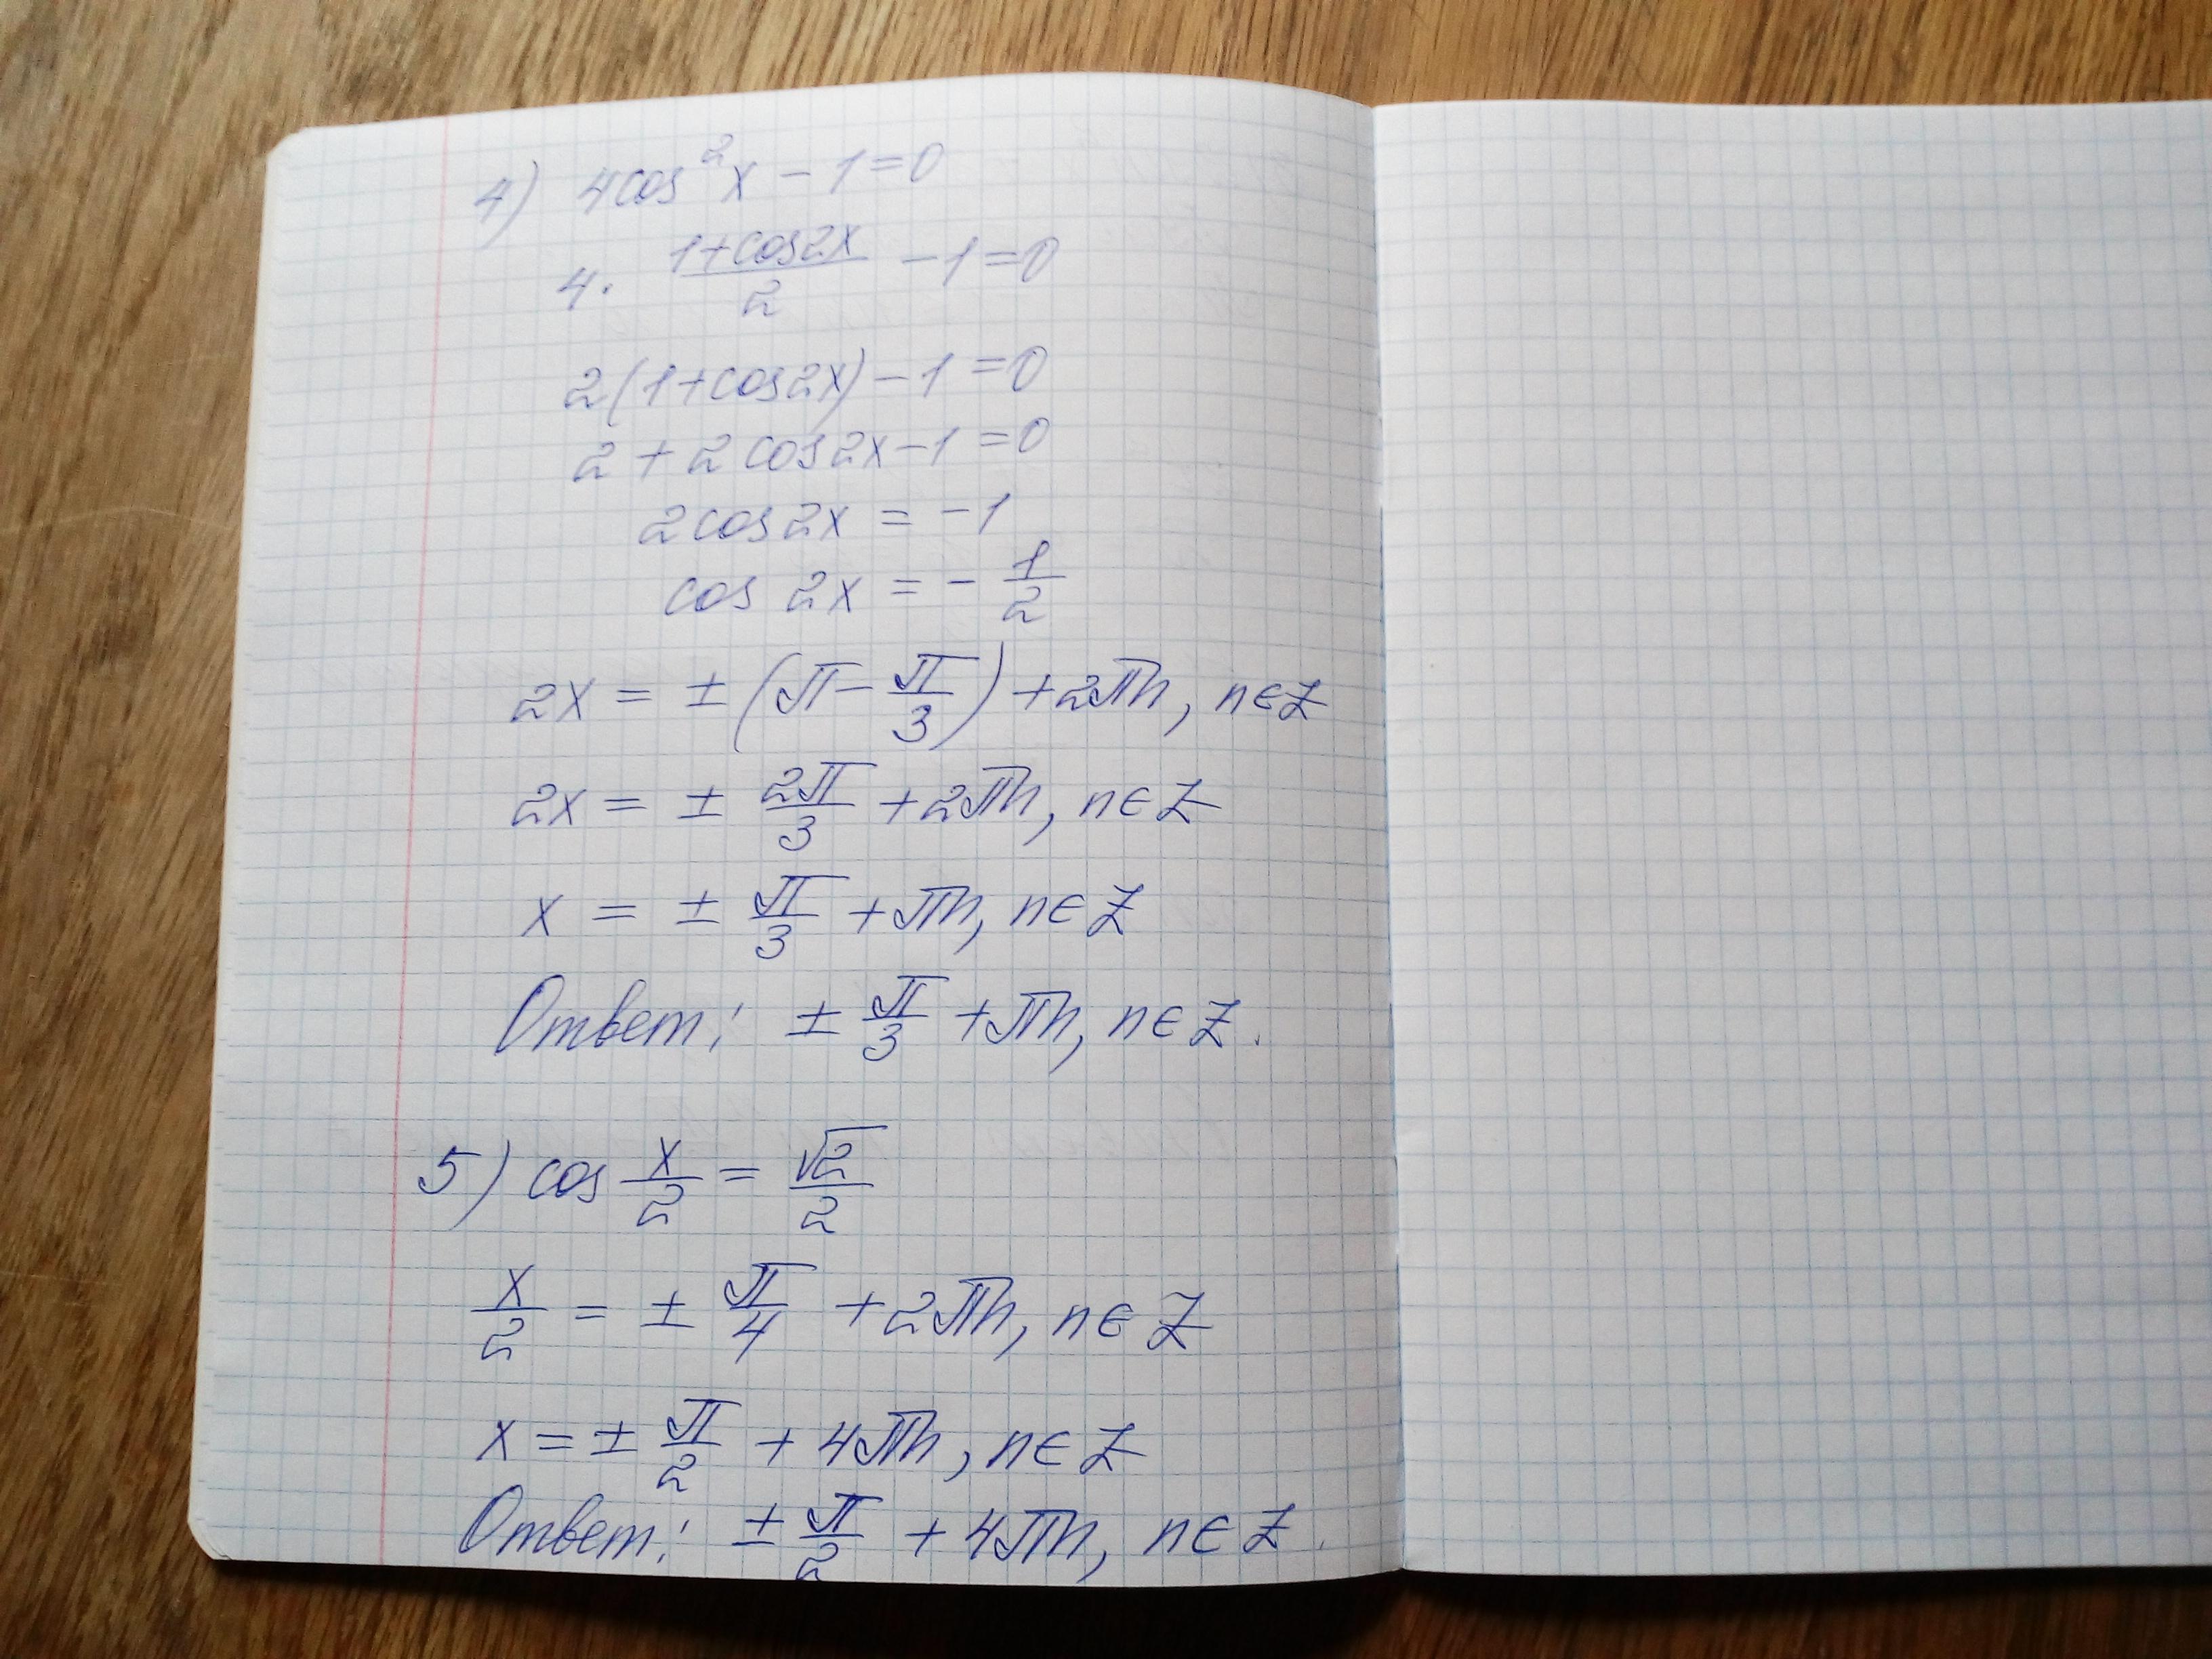 4) 4cos²x − 1 = 0
4 · (1+cos2x)/2 − 1 = 0
2(1+cos2x) − 1 = 0
2 + 2cos2x − 1 = 0
2cos2x = −1
cos 2x = − 1/2
2x = ± (π − π/3) + 2πn, n∈Z
2x = ± 2π/3 + 2πn, n∈Z
x = ± π/3 + πn, n∈Z
Ответ: ± π/3 + πn, n∈Z.
5) cos x/2 = √2/2
x/2 = ± π/4 + 2πn, n∈Z
x = ± π/2 + 4πn, n∈Z
Ответ: ± π/2 + 4πn, n∈Z.